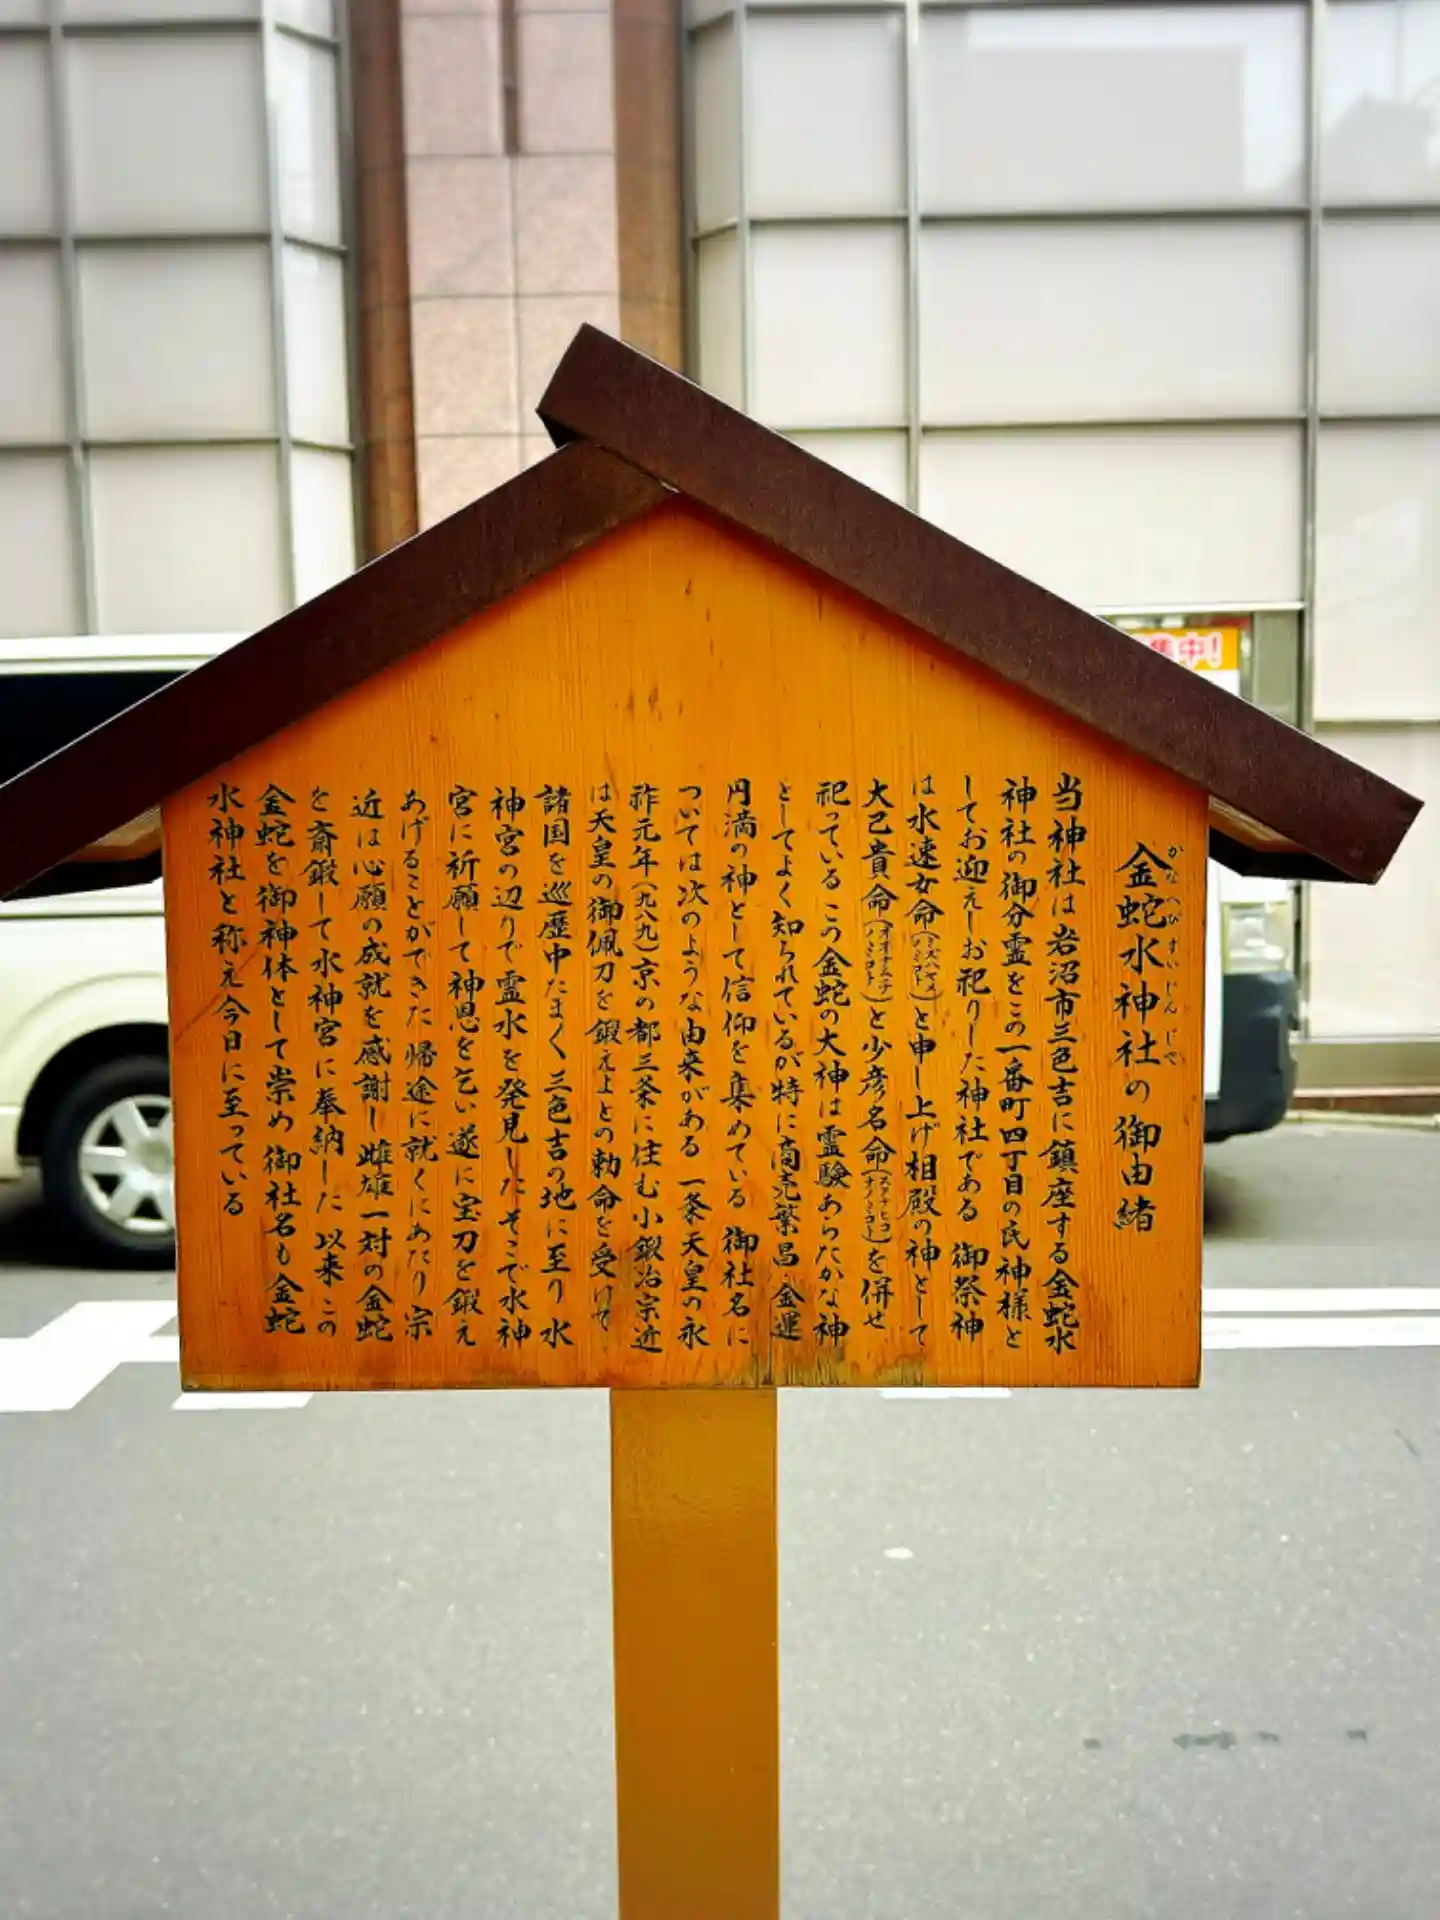 金蛇水神社の御由緒
かなへびすいじんじや
当神社は岩沼市三色吉に鎮座する金蛇水
神社の御分霊をこの一番町四丁目の氏神様と
してお迎えしお祀りした神社である 御祭神
は水速女命(ミズハヤメノミコト)と申し上げ相殿の神として
大己貴命(オオナムチノミコト)と少彦名命(スクナヒコナノミコト)を併せ
祀っている この金蛇の大神は霊験あらたかな神
としてよく知られているが特に商売繁昌 金運
円満の神として信仰を集めている 御社名に
ついては次のような由来がある 一条天皇の永
祚元年(九八九)京の都三条に住む小鍛冶宗近
は天皇の御佩刀を鍛えよとの勅命を受けて
諸国を巡歴中たまく三色吉の地に至り水
神宮の辺りで霊水を発見した そこで水神
宮に祈願して神恩を乞い遂に宝刀を鍛え
あげることができた 帰途に就くにあたり宗
近は心願の成就を感謝し雌雄一対の金蛇
を斎鍛して水神宮に奉納した 以来 この
金蛇を御神体として崇め 御社名も金蛇
水神社と称え今日に至っている
集中!